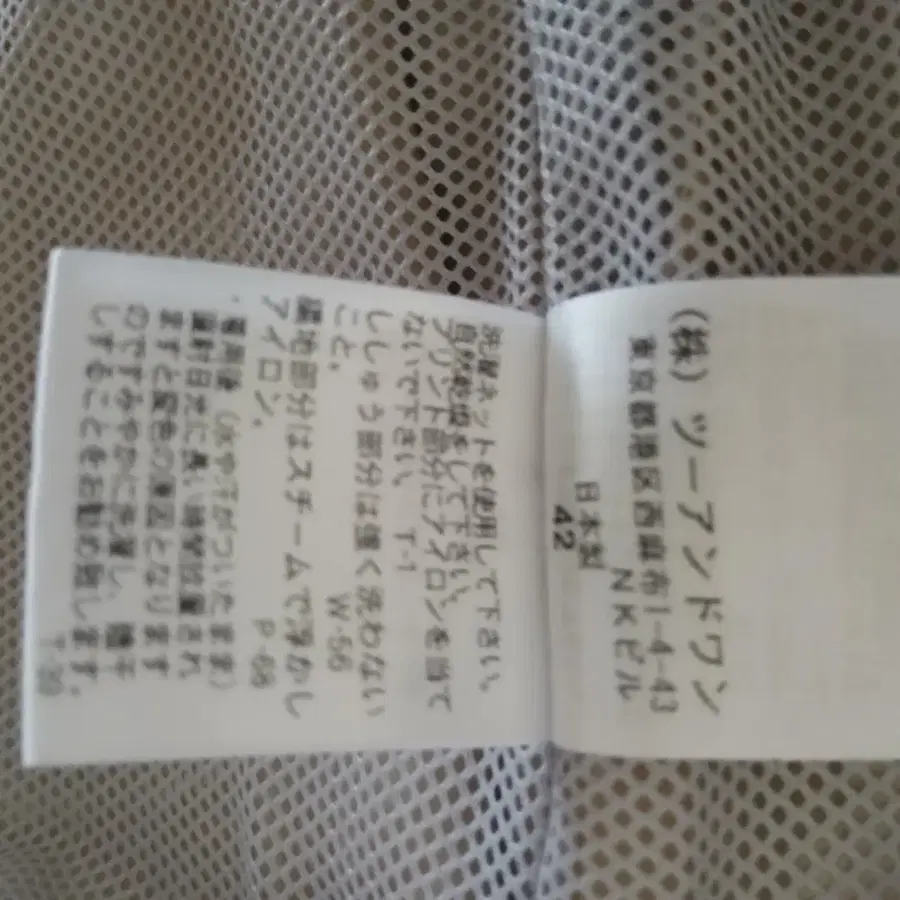 (株) ツーアンドワン
東京都港区西麻布1-4-43
NKビル
日本製
42
洗濯ネットを使用して下さい。
自然乾燥をして下さい。
プリント部分にアイロンを当て
ないで下さい。 T-1
ししゅう部分は強く洗わない
こと。 W-56
編地部分はスチームで浮かし
アイロン。 P-68
・着用後（水や汗がついたまま）
直射日光に長い時間放置され
ますと変色の原因となります
のですみやかに洗濯し、陰干
しすることをお勧め致します。